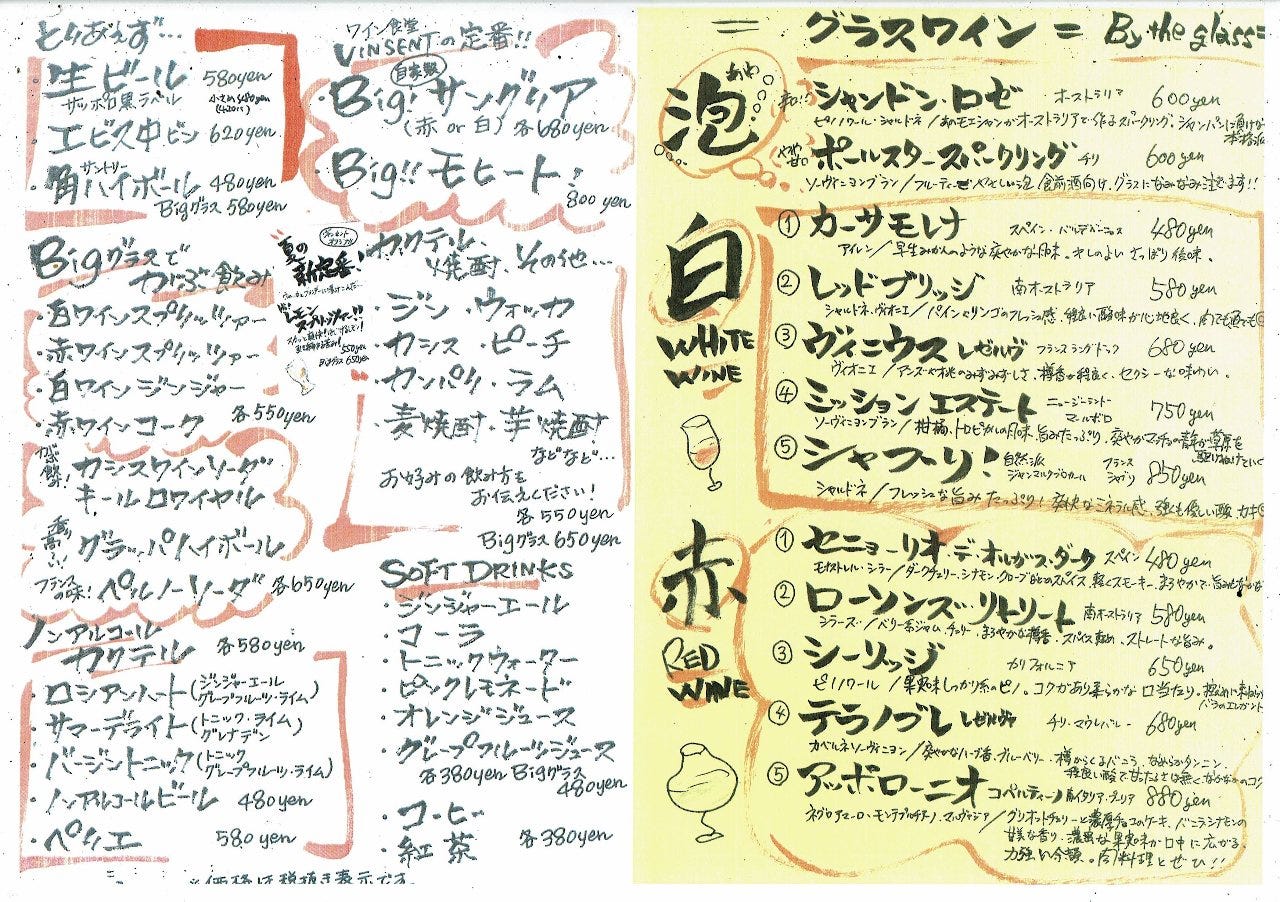 とりあえず…
・生ビール 580yen
サッポロ黒ラベル 小さめ480yen
・エビス中ビン 620yen
サントリー
・角ハイボール 480yen
Bigグラス 580yen
ワイン食堂
VINSENTの定番!!
自家製
・Big!サングリア
(赤 or 白) 各680yen
・Big!!モヒート!
800yen
Bigグラスで
がぶ飲み
・白ワインスプリッツァー
・赤ワインスプリッツァー
・白ワインジンジャー
・赤ワインコーク 各550yen
・カシスワインソーダ
・キールロワイヤル
・グラッパハイボール
フランスの味!
・ペルノーソーダ 各650yen
夏の
新定番!
レモン
550yen
Bigグラス 650yen
カクテル、
焼酎、その他…
・ジン・ウォッカ
・カシス・ピーチ
・カンパリ・ラム
・麦焼酎・芋焼酎
などなど…
お好みの飲み方を
お伝えください!
各550yen
Bigグラス650yen
ノンアルコール
カクテル 各580yen
・ロシアンハート(ジンジャーエール
グレープフルーツ・ライム)
・サマーデライト(トニック・ライム
グレナデン)
・バージントニック(トニック
グレープフルーツ・ライム)
・ノンアルコールビール 480yen
・ペリエ 580yen
※価格は税抜き表示です。
SOFT DRINKS
・ジンジャーエール
・コーラ
・トニックウォーター
・ピンクレモネード
・オレンジジュース
・グレープフルーツジュース
各380yen Bigグラス
480yen
・コーヒー
・紅茶 各380yen
= グラスワイン = By the glass =
泡 あわ
辛口!! シャンドン・ロゼ オーストラリア 600yen
ピノノワール・シャルドネ/あのモエシャンがオーストラリアで作るスパークリング。シャンパンに負けない
本格派
やや甘口 ポールスタースパークリング チリ 600yen
ソーヴィニヨンブラン/フルーティーでやさしい泡 食前酒向け。グラスになみなみ注ぎます!!
白
WHITE
WINE
① カーサモレナ スペイン・バルデペーニャス 480yen
アイレン/早生みかんのような爽やかな風味。キレのよい さっぱり後味。
② レッドブリッジ 南オーストラリア 580yen
シャルドネ、ヴィオニエ/パインやリンゴのフレッシュ感、程良い酸味が心地良く、肉でも魚でも
③ ヴィニウス レゼルヴ フランス ラングドック 680yen
ヴィオニエ/アンズや桃のみずみずしさ、樽香が程良く、セクシーな味わい。
④ ミッションエステート ニュージーランド
マルボロ 750yen
ソーヴィニヨンブラン/柑橘、トロピカルの風味、旨みたっぷり、爽やかマッチョの青年が草原を
駆けぬけていく
⑤ シャブリ! 自然派
ジャンマルクブロカール フランス
シャブリ 850yen
シャルドネ/フレッシュな旨みたっぷり! 爽快なミネラル感、強くも優しい酸 カキ
赤
RED
WINE
① セニョーリオ・デ・オルガス・ダーク スペイン 480yen
モナストレル・シラー/ダークチェリー、シナモン、クローブなどのスパイス、軽くスモーキー、まろやかで、旨みもなかな
② ローソンズ・リトリート 南オーストラリア 580yen
シラーズ/ベリー系ジャム、チェリー、まろやかな樽香、スパイス軽め、ストレートな旨み。
③ シーリッジ カリフォルニア 650yen
ピノノワール/果実味しっかり系のピノ。コクがあり柔らかな口当たり。
バラのエレガント
④ テラノブレ レゼルヴァ チリ・マウレバレー 680yen
カベルネソーヴィニヨン/爽やかなハーブ香、ブルーベリー、樽からくるバニラ、なめらかタンニン、
程良い酸で甘ったるさは無く、なかなかのコク
⑤ アッポローニオ コペルティーノ 南イタリア・プーリア 880yen
ネグロアマーロ・モンテプルチアーノ・マルヴァジア/グリオットチェリーと濃厚チョコのケーキ、バニラシナモンの
甘美な香り、濃密な果実味が口中に広がる。
力強い余韻。肉料理とぜひ!!